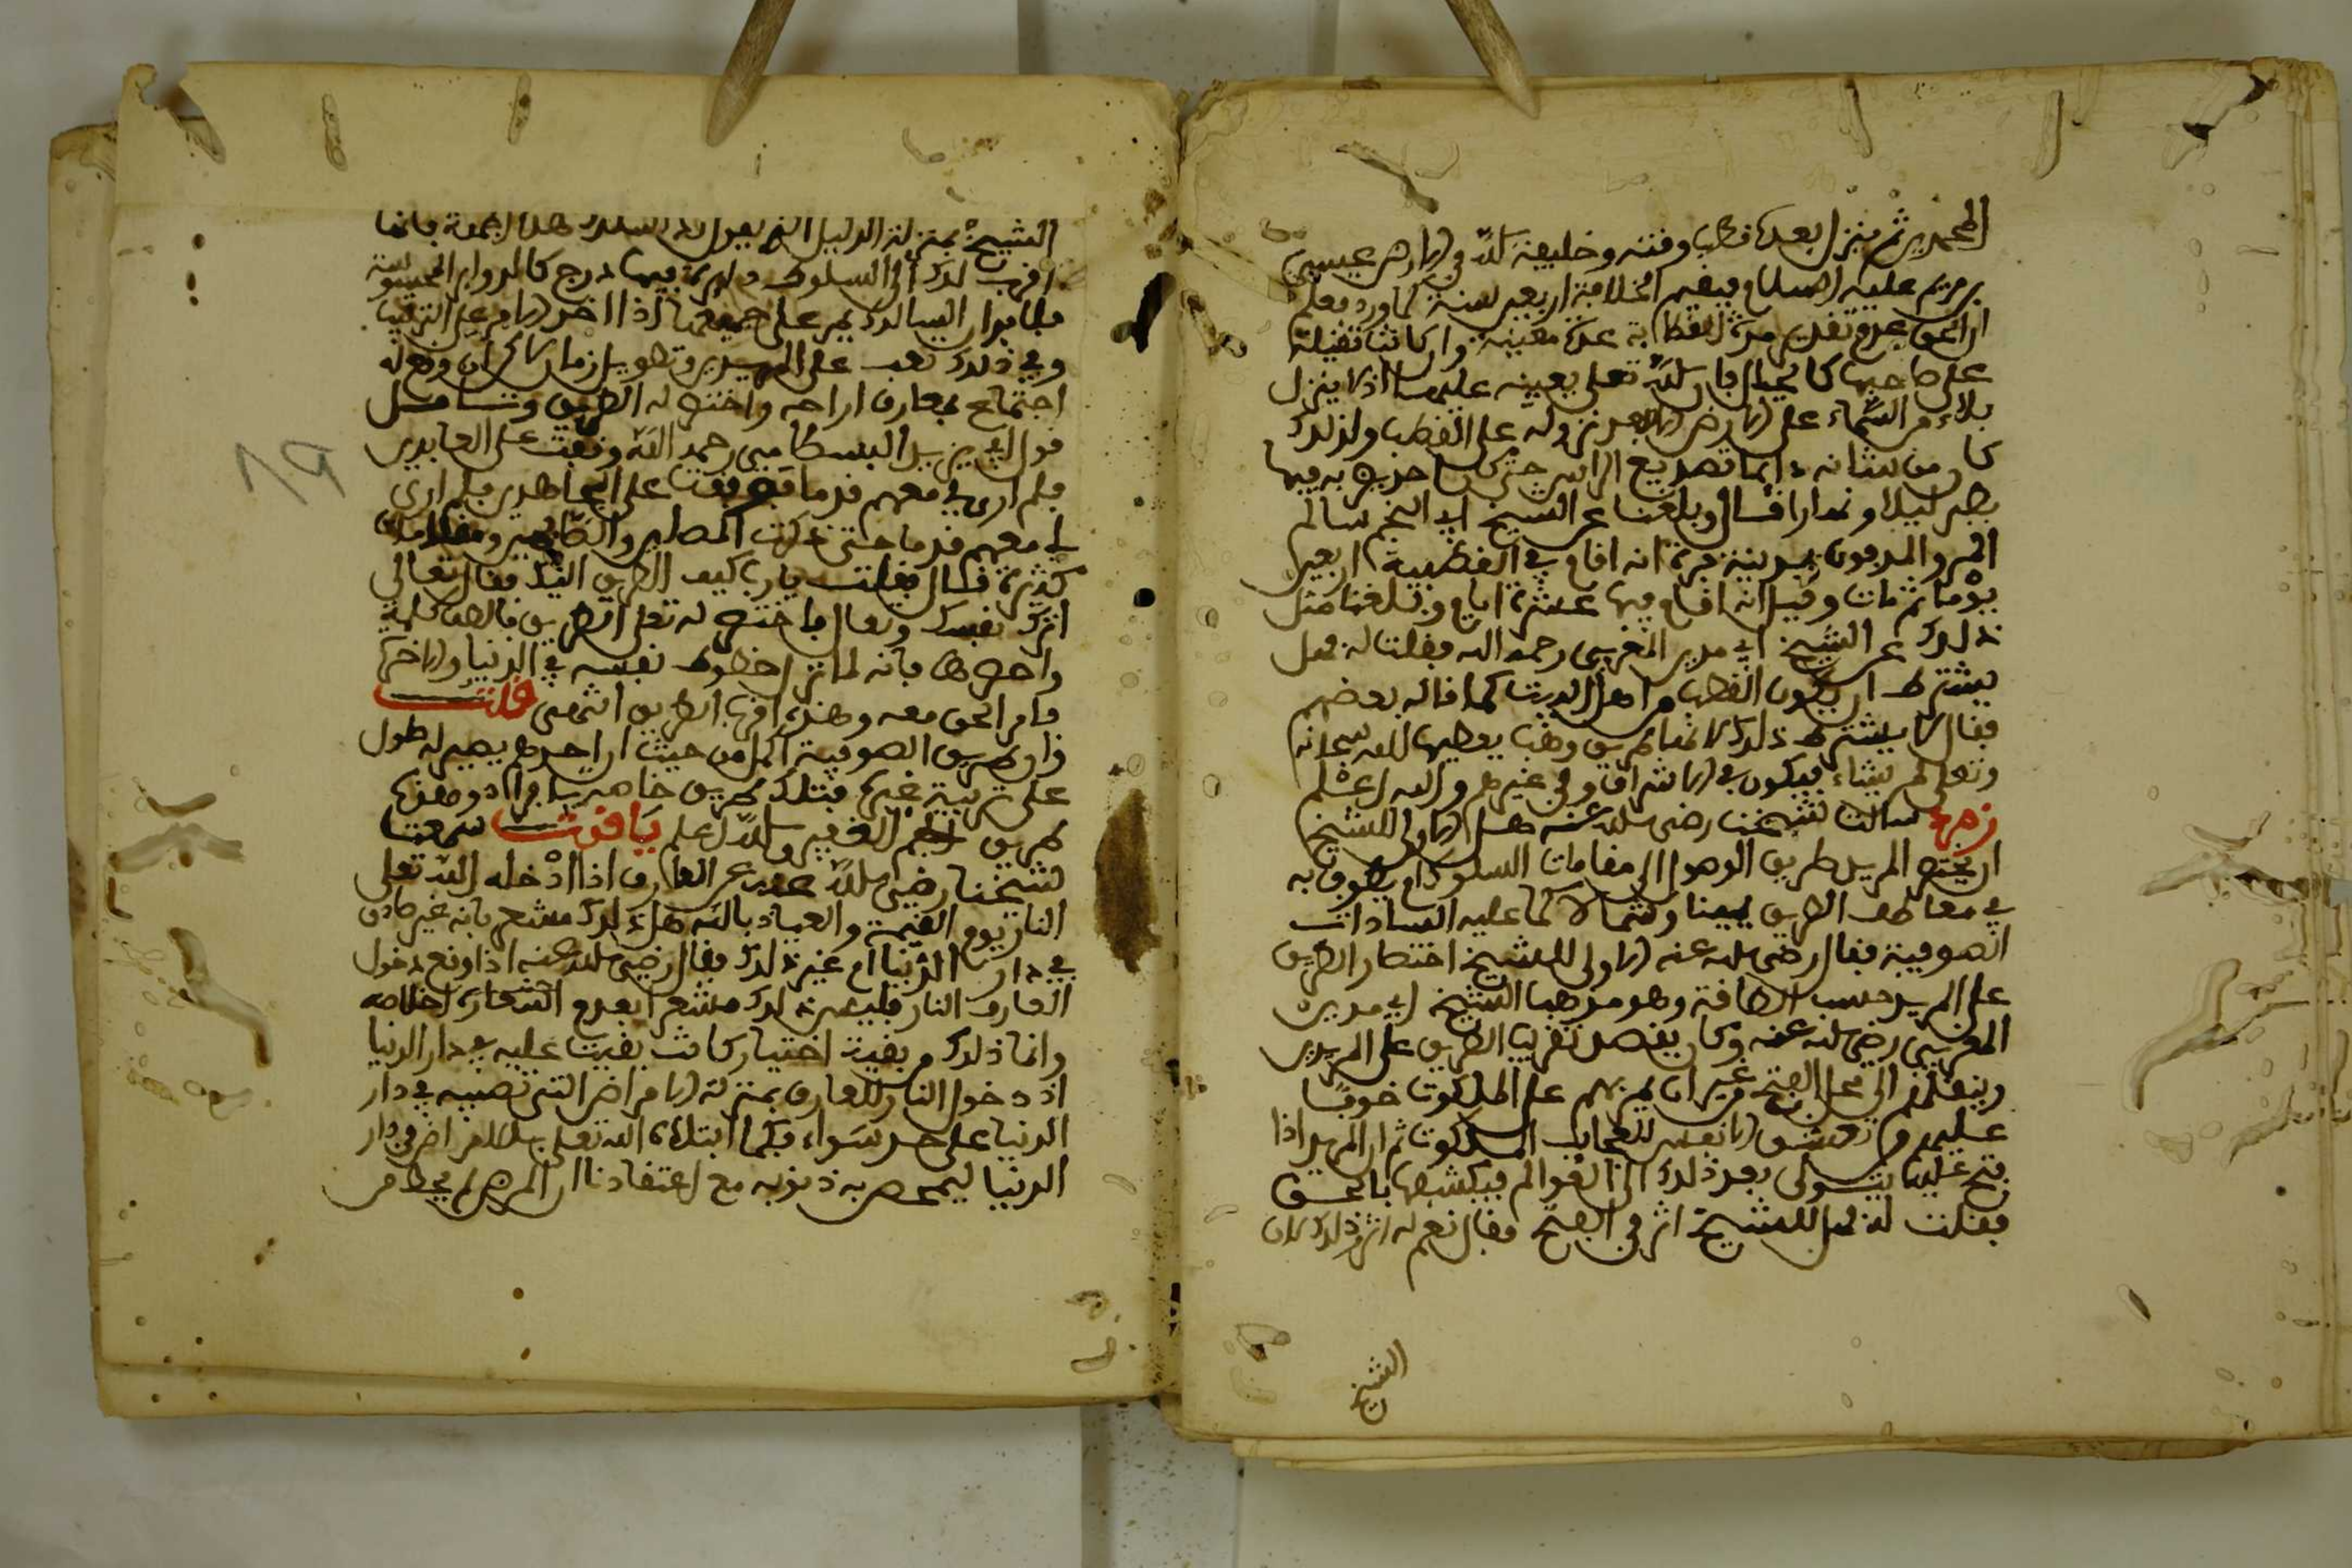 المحمديين ثم ينزل بعده قطب وقته وخليفة الله في الارض عيسى
بن مريم عليه السلام فيقيم الخلافة اربعين سنة كما ورد فعلم
ان الحق عدم تقدير مدة القطابة بمدة معينة وان كانت ثقيلة
على صاحبها كالجبال فان الله تعلى يعينه عليها اذ لا ينزل
بلاء من السماء على الارض الا بعد نزوله على القطب ولذلك
كان من شانه دائما تصديع الراس حتى كان احد يضربه فيها
بطبر ليلا ونهارا قال وبلغنا عن الشيخ ابي النجم سالم
المدفون بمدينة فوة انه اقام في القطبية اربعين
يوما ثم مات وقيل انه اقام فيها عشرة ايام وبلغنا مثل
ذلك عن الشيخ ابي مدين المغربي رحمه الله فقلت له فهل
يشترط ان يكون القطب من اهل البيت كما قاله بعضهم
فقال لا يشترط ذلك لانها طريق وهب يعطيها الله سبحانه
وتعلى لمن يشاء فيكون في الاشراف وفي غيرهم والله اعلم
زمرد سالت شيخنا رضي الله عنه هل الاولى للشيخ
ان يختصر للمريد طريق الوصول الى مقامات السلوك ام يطوف به
في معاطف الطريق يمينا وشمالا كما عليه السادات
الصوفية فقال رضي الله عنه الاولى للشيخ اختصار الطريق
على المريد حسب الطاقة وهو مذهب الشيخ ابي مدين
المغربي رضي الله عنه وكان يقصد تقريب الطريق على المريدين
وينقلهم الى محل الفتح من غير ان يمر بهم على الملكوت خوفا
عليهم من تعشق الانفس لعجايب الملكوت ثم ان المريد اذا
فتح عليه يتدلى بعد ذلك الى العوالم فيكشفها بالحق
فقلت له فهل للشيخ اثر في الفتح فقال نعم له اثر وذلك لان
الشيخ
الشيخ بمنزلة الدليل الذي يقول لك اسلك هذه الجهة فانها
اقرب لك الى السلوك دائرة فيها درج كالدواير المحبوسة
السالك يمر على جميعها اذا اخر الامر على الترتيب
وفي ذلك تعب على المريدين وتطويل زمان لكن ان وقع له
اجتماع بعارف اراحه واختصر له الطريق وتامل
قول ابي يزيد البسطامي رحمه الله وقفت على العابدين
فلم ار لي معهم قدما فوقفت على المجاهدين فلم ار
لي معهم قدما حتى ذكرت المصلين والصايمين ومقامات
كثيرة قال فقلت يا رب كيف الطريق اليك فقال تعالى
اترك نفسك وتعال فاختصر له تعلى الطريق بالطف كلمة
واخصرها فانه لما ترك حظوظ نفسه في الدنيا والاخرة
قام الحق معه وهذه اقرب الطريق انتهى قلت
وان طريق الصوفية اكمل من حيث ان احدهم يصير له طول
على تربية غيره فتلك طريق خاصة بافراد وهذه
طريق الفقير والله اعلم ياقوت سمعت
شيخنا رضي الله عنه عن العارف اذا ادخله الله تعلى
النار يوم القيمة والعياذ بالله هل ذلك مشعر بانه غير صادق
في دار الدنيا ام غير ذلك فقال رضي الله عنه اذا وقع دخول
العارف النار فليس ذلك مشعرا بعدم السعادة اخلاصه
وانما ذلك من بقية اختيار كانت بقيت عليه في دار الدنيا
اذ دخول النار للعارف بمنزلة الامراض التي تصيبه في دار
الدنيا على حد سواء فكما ابتلاه الله تعلى بالامراض في دار
الدنيا ليمحص به ذنوبه مع اعتقادنا ان المرض لم يحط من